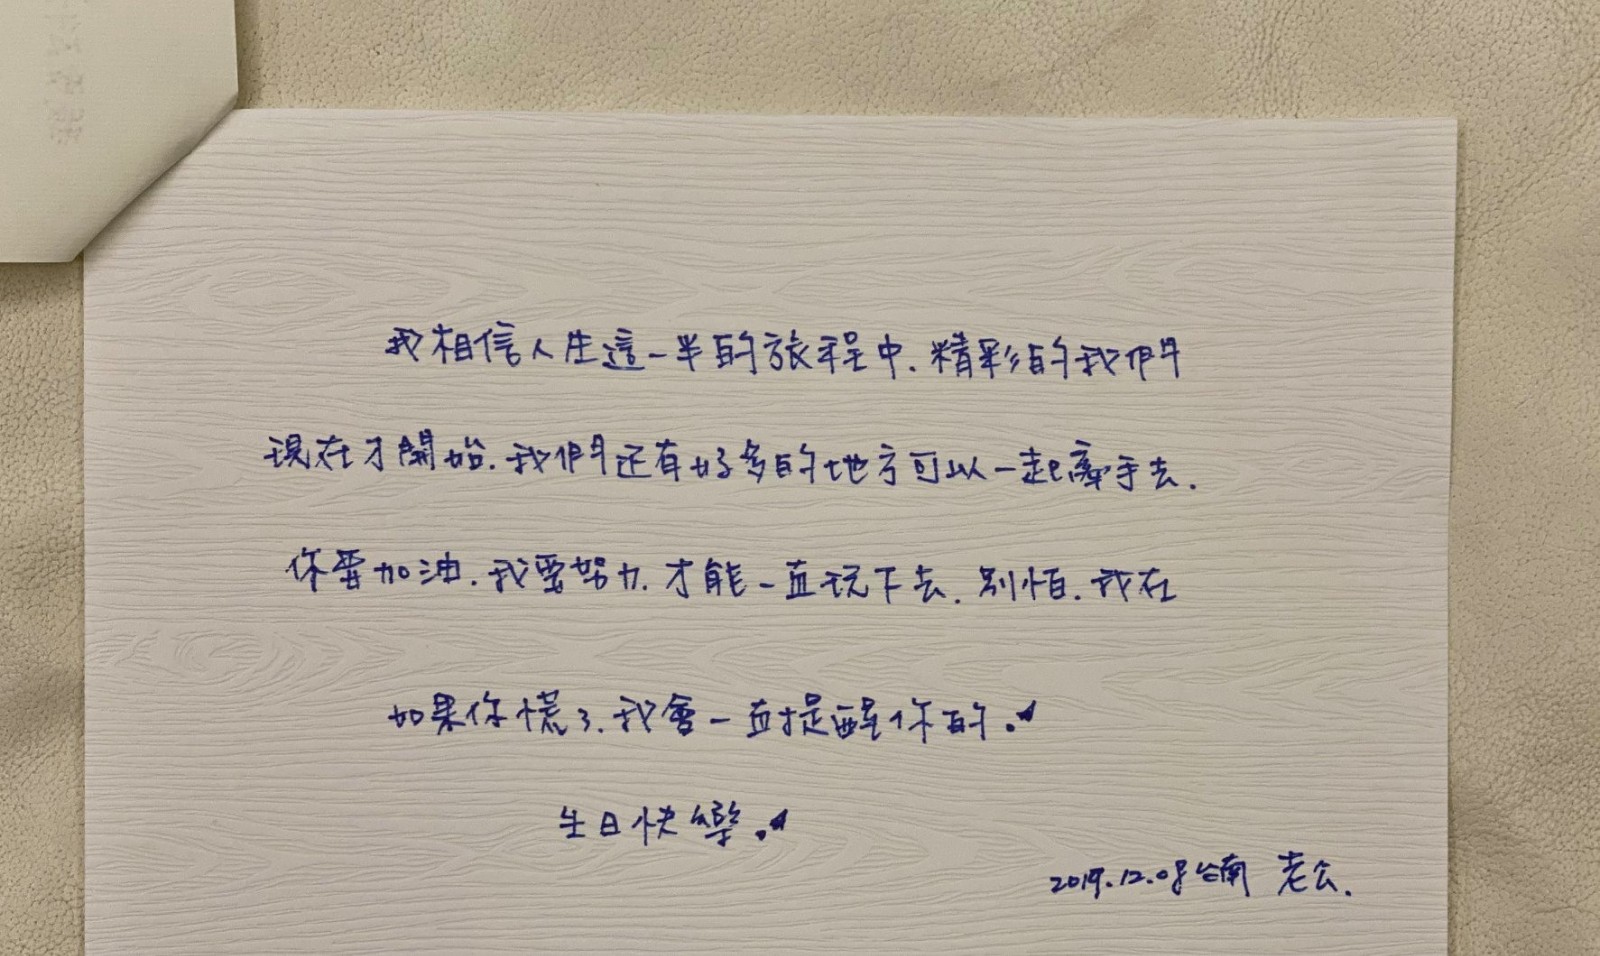 我相信人生這一半的旅程中.精彩的我們
現在才開始.我們还有好多的地方可以一起牽手去.
你要加油.我要努力.才能一直玩下去.別怕.我在
如果你慌了.我會一直提醒你的.
生日快樂.
2019.12.08台南 老公.